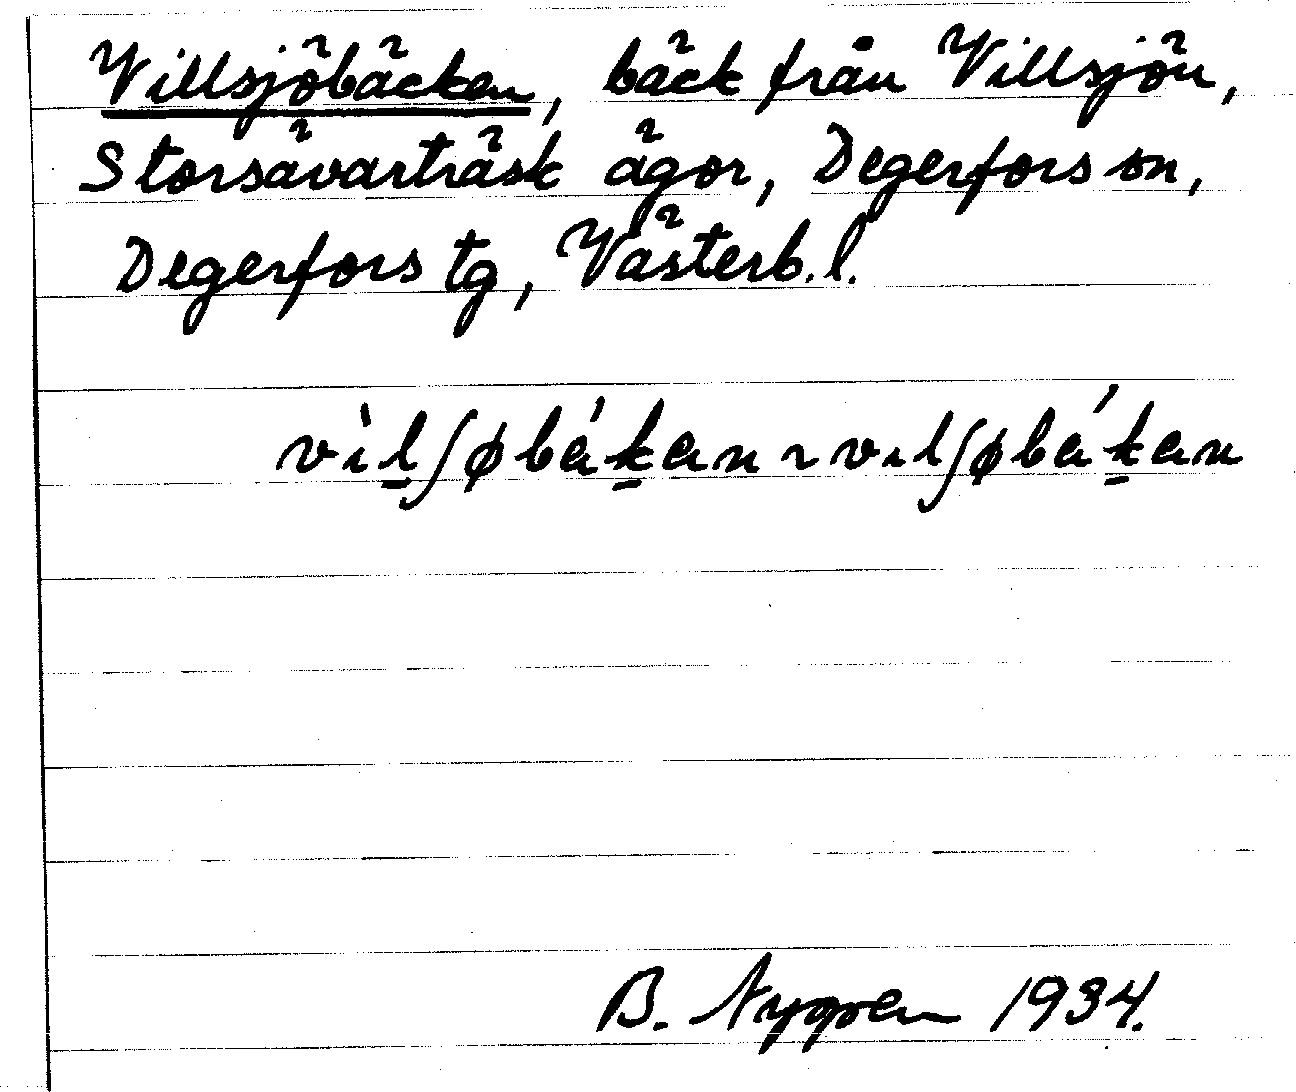 Villsjöbäcken, bäck från Villsjön,
Storsävarträsk ägor, Degerfors sn,
Degerfors tg, Västerb. l.
vìl̲ʃøbák̲an ~ vılʃøbák̲an
B. Nygren 1934.